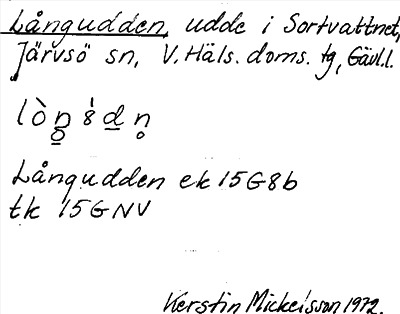 Långudden, udde i Sortvattnet,
Järvsö sn, V. Häls. doms. tg, Gävl. l.
lòn̠g̠ 8́ d̠ n̥
Långudden ek 15G8b
tk 15GNV
Kerstin Mickelsson 1972.